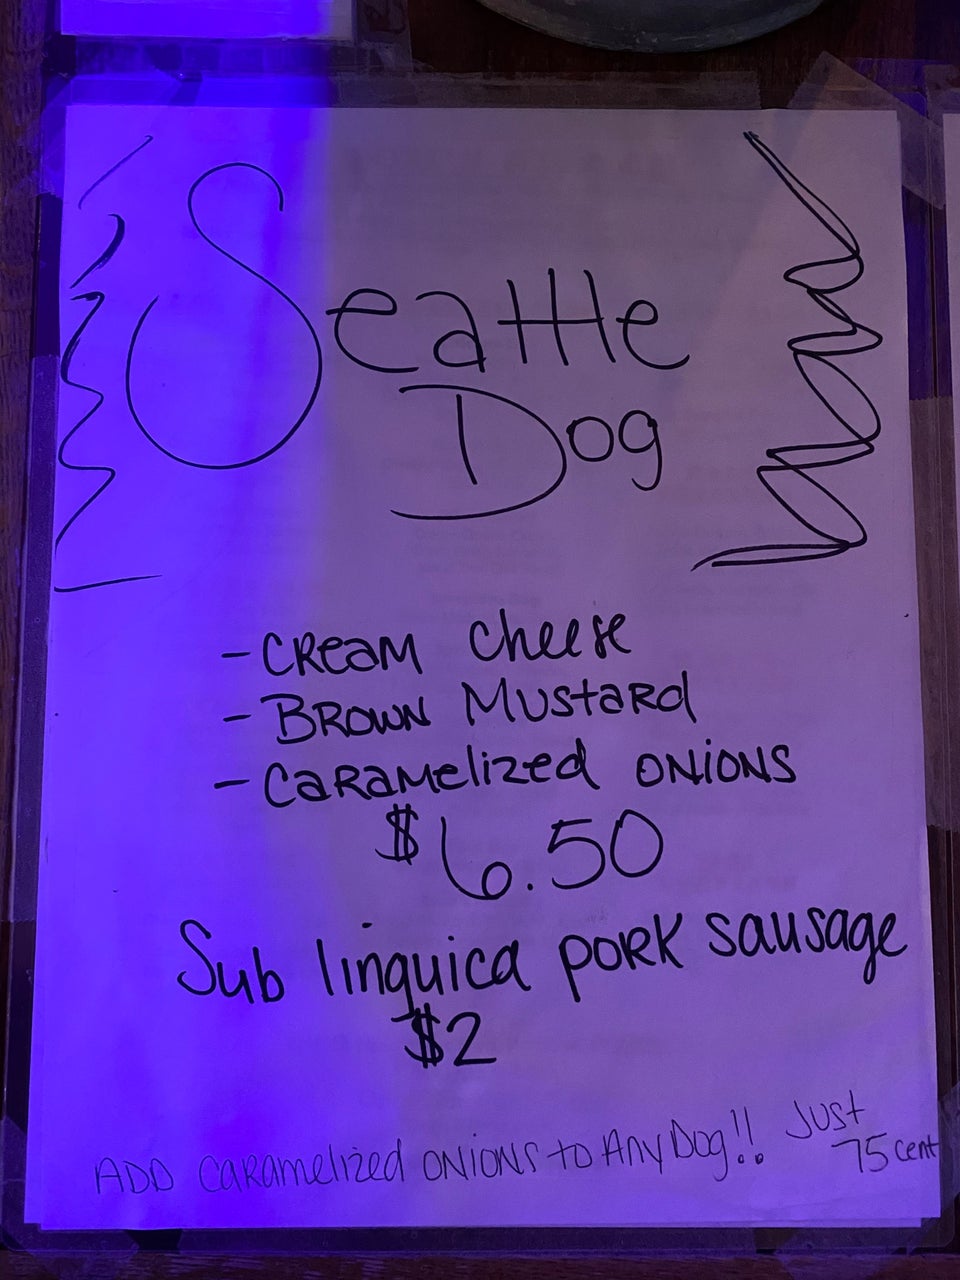 Seattle
Dog
- CReam cheese
- BROWN Mustard
- CaRamelized ONiONS
$6.50
Sub linguica poRk sausage
$2
ADD CaRamelized ONiONS to ANy Dog!! Just
75 cent